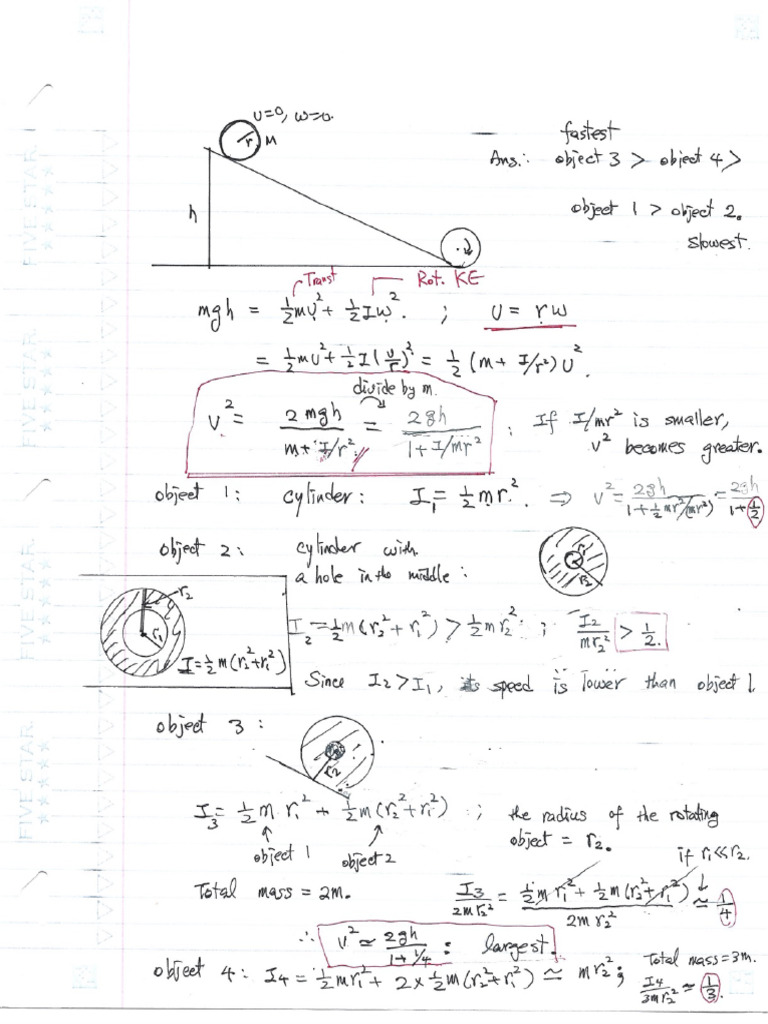 υ=0, ω=0.
r M
h
fastest
Ans.: object 3 > object 4 >
object 1 > object 2.
slowest.
Transl Rot. KE
mgh = ½mυ² + ½Iω². ; υ = rω
= ½mυ² + ½I(υ/r)² = ½(m + I/r²)υ².
divide by m.
v² = 2mgh/(m + I/r²) = 2gh/(1 + I/mr²) ; If I/mr² is smaller,
v² becomes greater.
object 1: cylinder: I₁ = ½mr². ⇒ v² = 2gh/(1+½mr²/(mr²)) = 2gh/(1+½)
object 2: cylinder with
a hole in the middle:
r₁
r₂
r₂
r₁
I = ½m(r₂²+r₁²)
I₂ = ½m(r₂² + r₁²) > ½mr₂² ; I₂/mr₂² > ½.
Since I₂ > I₁, its speed is lower than object 1.
object 3:
r₂
I₃ = ½m r₁² + ½m(r₂²+r₁²) ; the radius of the rotating
object = r₂.
object 1 object 2
if r₁ ≪ r₂.
Total mass = 2m. I₃/2mr₂² = (½mr₁² + ½m(r₂²+r₁²))/2mr₂² ≃ ¼
∴ v² ≃ 2gh/(1+¼) : largest.
object 4: I₄ = ½mr₁² + 2×½m(r₂²+r₁²) ≃ mr₂²; Total mass = 3m.
I₄/3mr₂² ≃ ⅓.
FIVE STAR
FIVE STAR
FIVE STAR